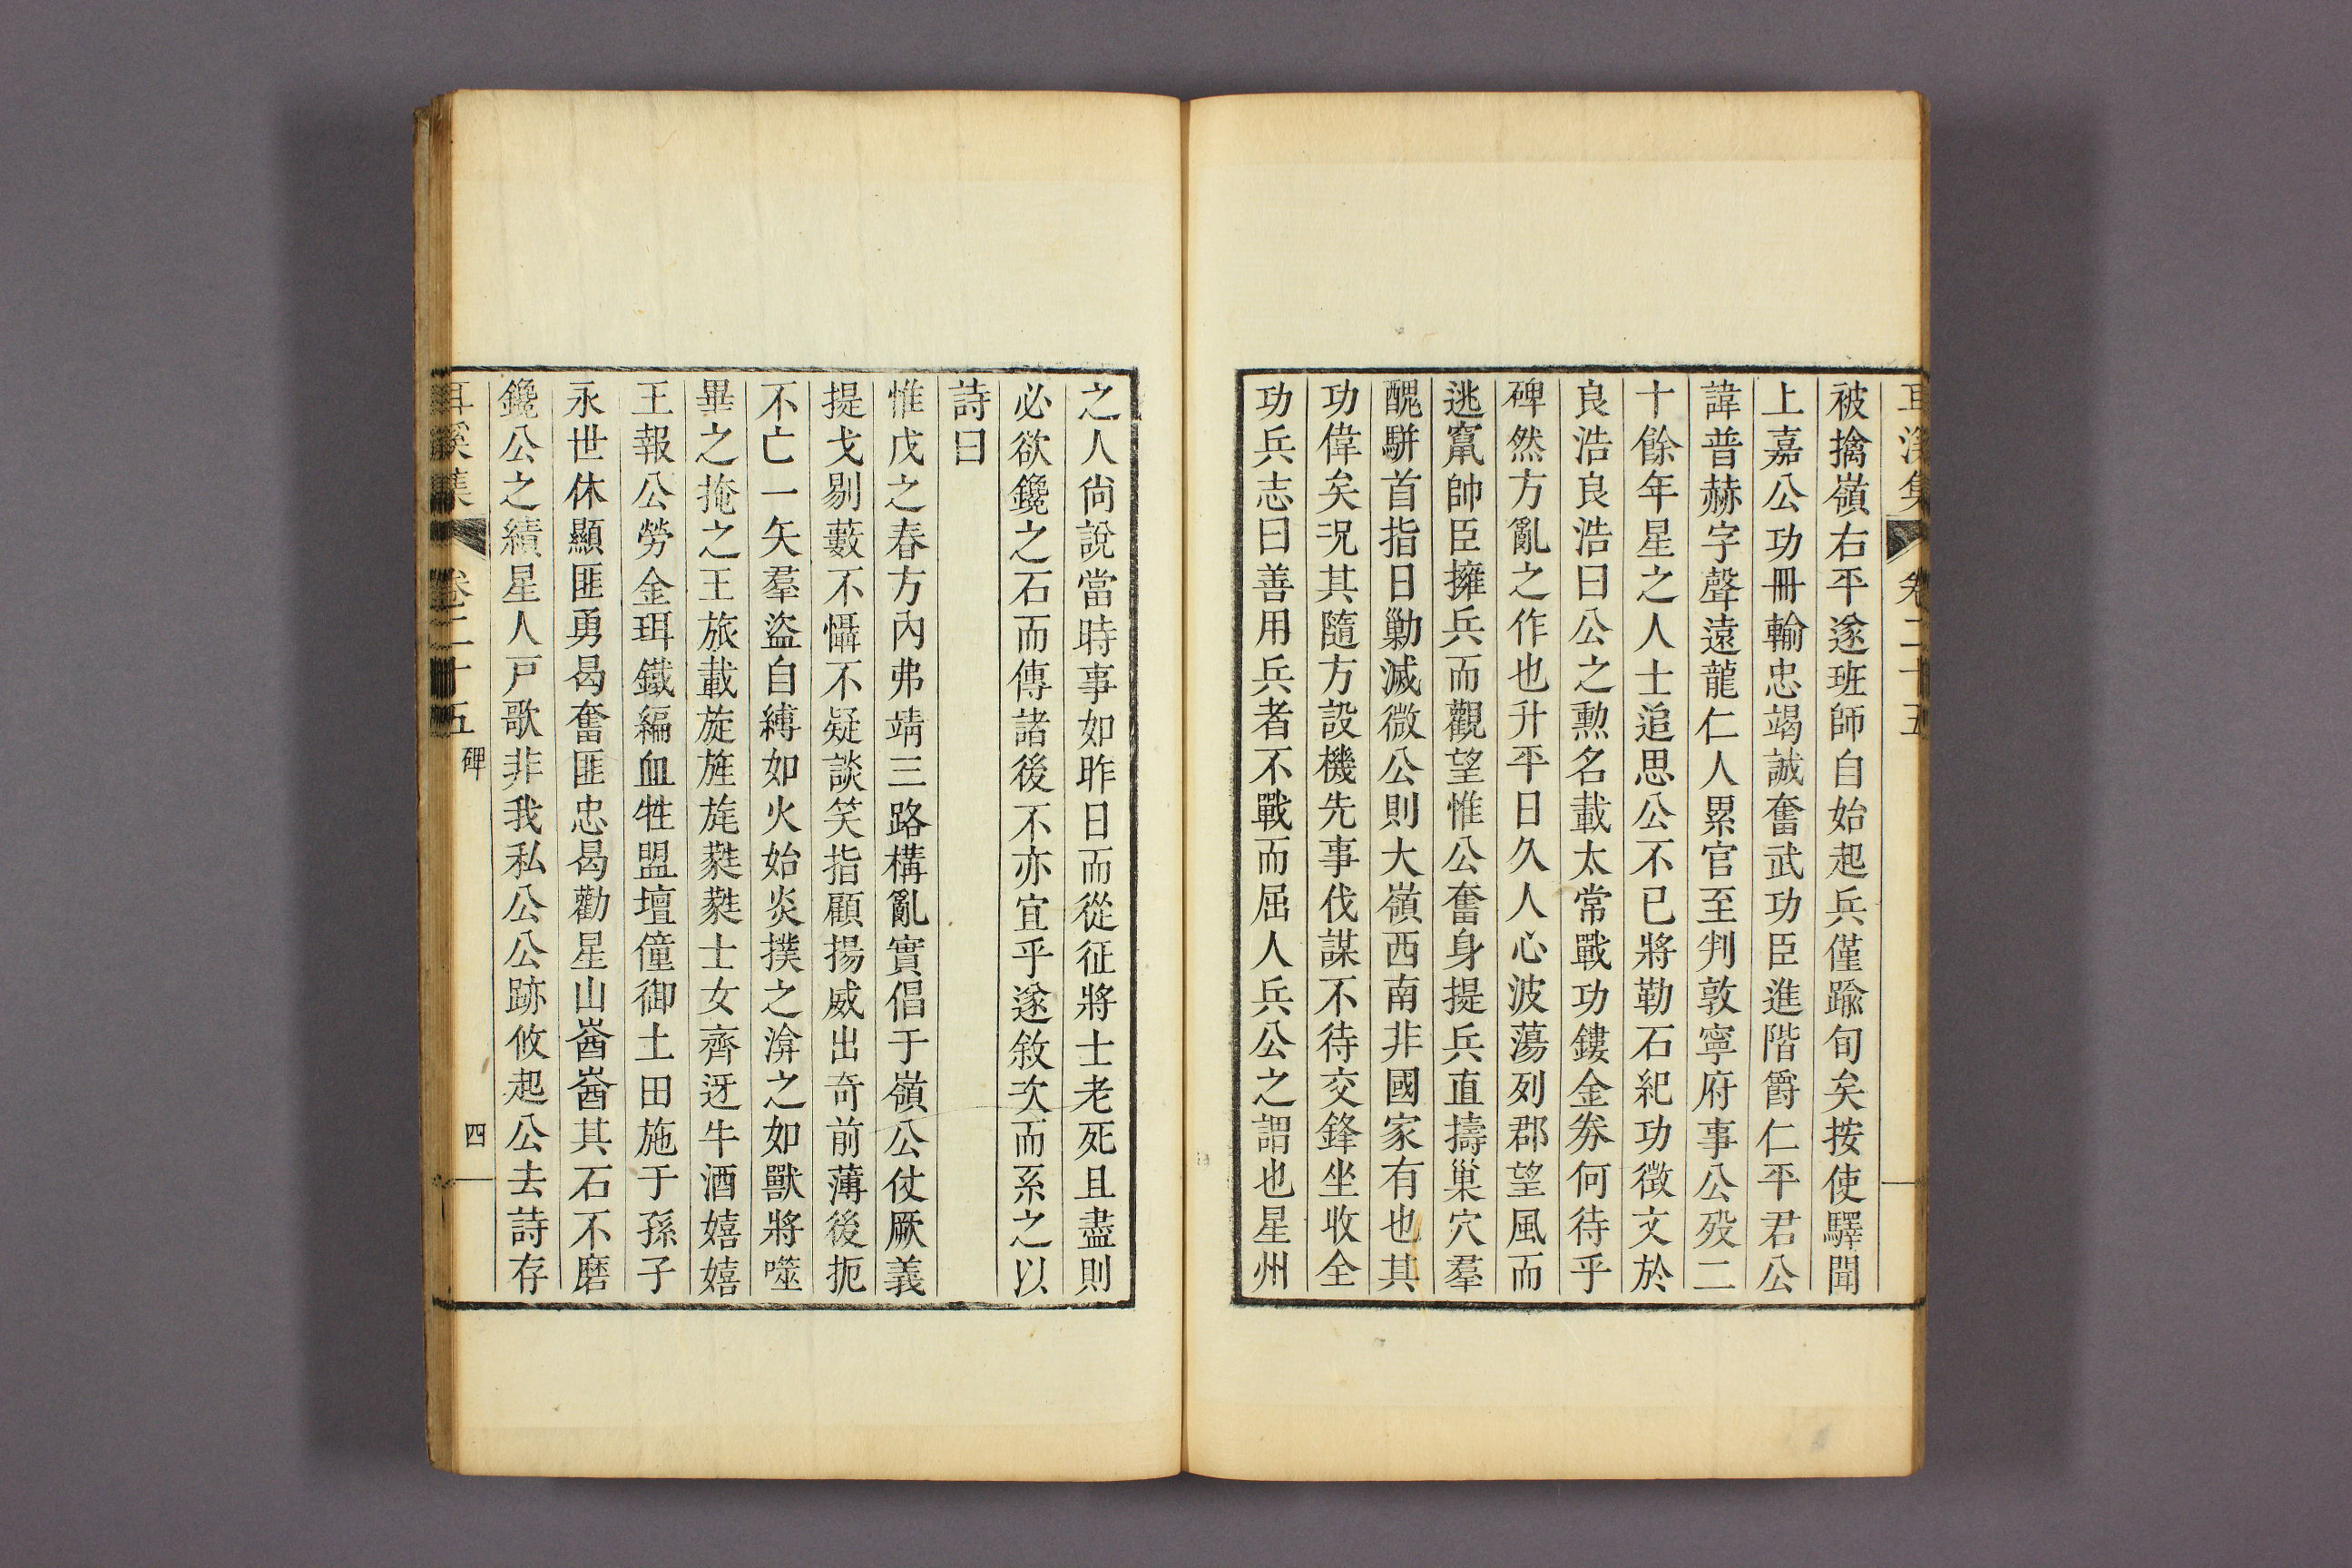 耳溪集 卷二十五
被擒嶺右平遂班師自始起兵僅踰旬矣按使驛聞
上嘉公功冊輸忠竭誠奮武功臣進階爵仁平君公
諱普赫字聲遠龍仁人累官至判敦寧府事公歿二
十餘年星之人士追思公不已將勒石紀功徵文於
良浩良浩曰公之勳名載太常戰功鏤金券何待乎
碑然方亂之作也升平日久人心波蕩列郡望風而
逃竄帥臣擁兵而觀望惟公奮身提兵直擣巢穴羣
醜駢首指日勦滅微公則大嶺西南非國家有也其
功偉矣況其隨方設機先事伐謀不待交鋒坐收全
功兵志曰善用兵者不戰而屈人兵公之謂也星州
之人尙說當時事如昨日而從征將士老死且盡則
必欲鑱之石而傳諸後不亦宜乎遂敘次而系之以
詩曰
惟戊之春方內弗靖三路構亂實倡于嶺公仗厥義
提戈剔藪不懾不疑談笑指顧揚威出奇前薄後扼
不亡一矢羣盜自縛如火始炎撲之渰之如獸將噬
畢之掩之王旅載旋旌旄蕤蕤士女齊迓牛酒嬉嬉
王報公勞金珥鐵編血牲盟壇僮御土田施于孫子
永世休顯匪勇曷奮匪忠曷勸星山崷崷其石不磨
鑱公之績星人戸歌非我私公公跡攸起公去詩存
耳溪集 卷二十五 碑 四